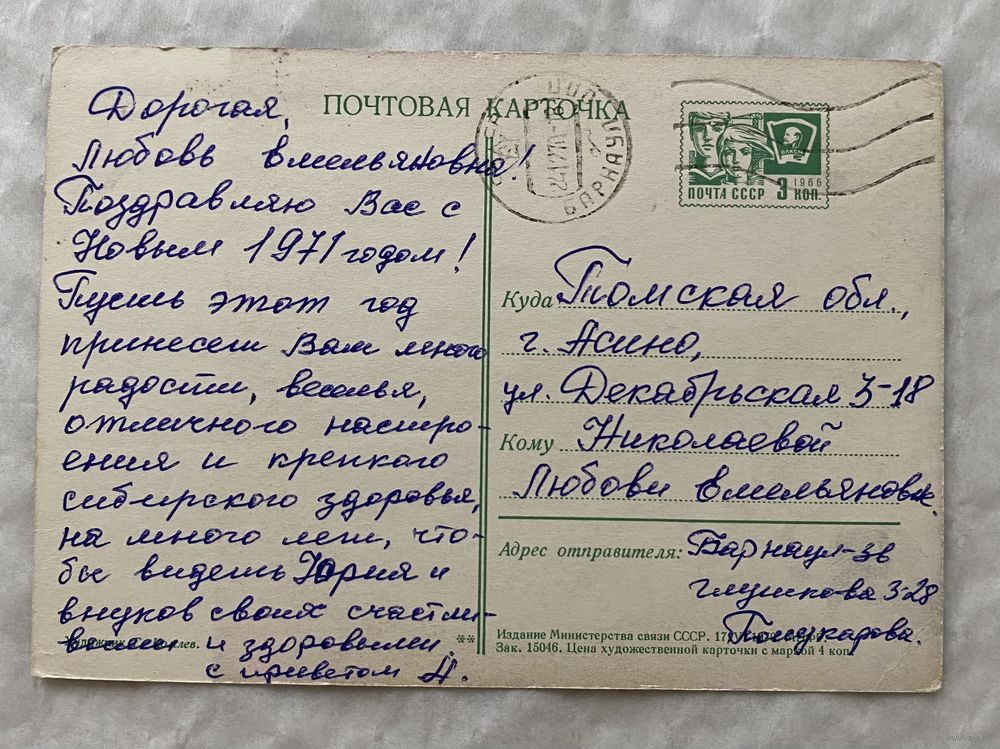 ПОЧТОВАЯ КАРТОЧКА
Дорогая,
Любовь Емельяновна!
Поздравляю Вас с
Новым 1971 годом!
Пусть этот год
принесет Вам много
радости, веселья,
отличного настро-
ения и крепкого
сибирского здоровья,
на много лет, что-
бы видеть Юрия и
внуков своих счастли-
выми и здоровыми.
с приветом Н.
БАРНАУЛ
ВЛКСМ
1966
ПОЧТА СССР 3 КОП.
Куда Томская обл.,
г. Асино,
ул. Декабрьская 3-18
Кому Николаевой
Любови Емельяновн.
Адрес отправителя: Барнаул-36
Глушкова 3-28
**
Издание Министерства связи СССР.
Зак. 15046. Цена художественной карточки с маркой 4 коп.